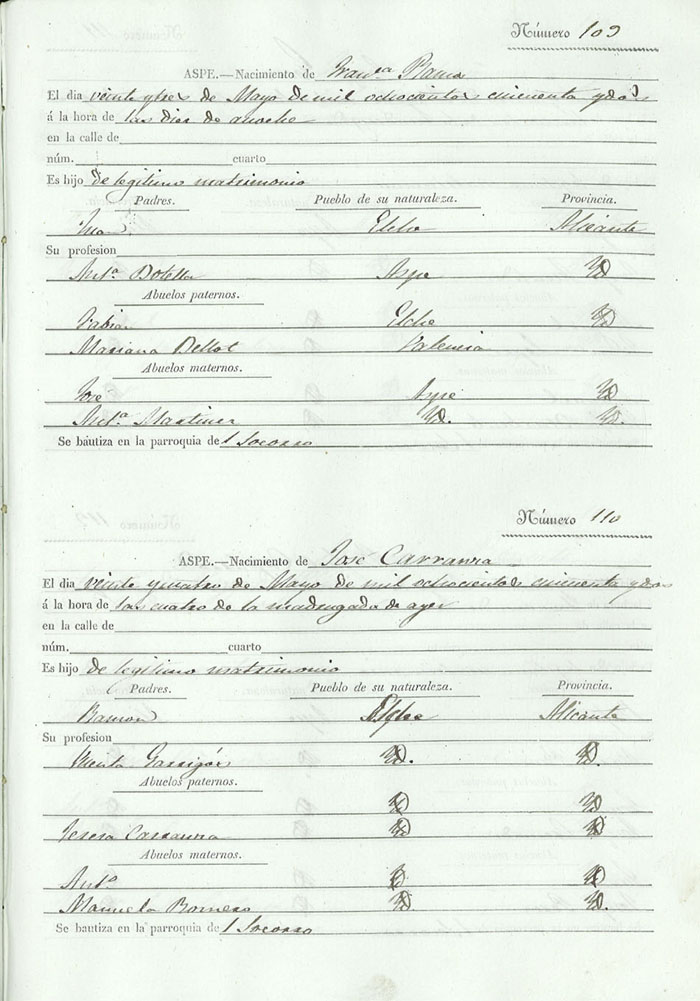 Número 109
ASPE.—Nacimiento de Franca
El dia veinte y tres de Mayo de mil ochocientos cincuenta y dos
á la hora de las dies de anoche
en la calle de
núm. cuarto
Es hijo de legitimo matrimonio
Padres. Pueblo de su naturaleza. Provincia.
Juan Elche Alicante
Su profesion
Anta. Botella Aspe Yd
Abuelos paternos.
Fabian Elche Yd
Mariana Bellot Valencia
Abuelos maternos.
José Aspe Yd
Anta. Martinez Yd. Yd.
Se bautiza en la parroquia del Socorro
Número 110
ASPE.—Nacimiento de José Carranza
El dia veinte y cuatro de Mayo de mil ochocientos cincuenta y dos
á la hora de las cuatro de la madrugada de ayer
en la calle de
núm. cuarto
Es hijo de legitimo matrimonio
Padres. Pueblo de su naturaleza. Provincia.
Ramon Elche Alicante
Su profesion
Garrigós Yd. Yd.
Abuelos paternos.
Yd Yd
Teresa Carranza Yd Yd
Abuelos maternos.
Anto. Yd Yd
Manuela Romero Yd Yd.
Se bautiza en la parroquia del Socorro